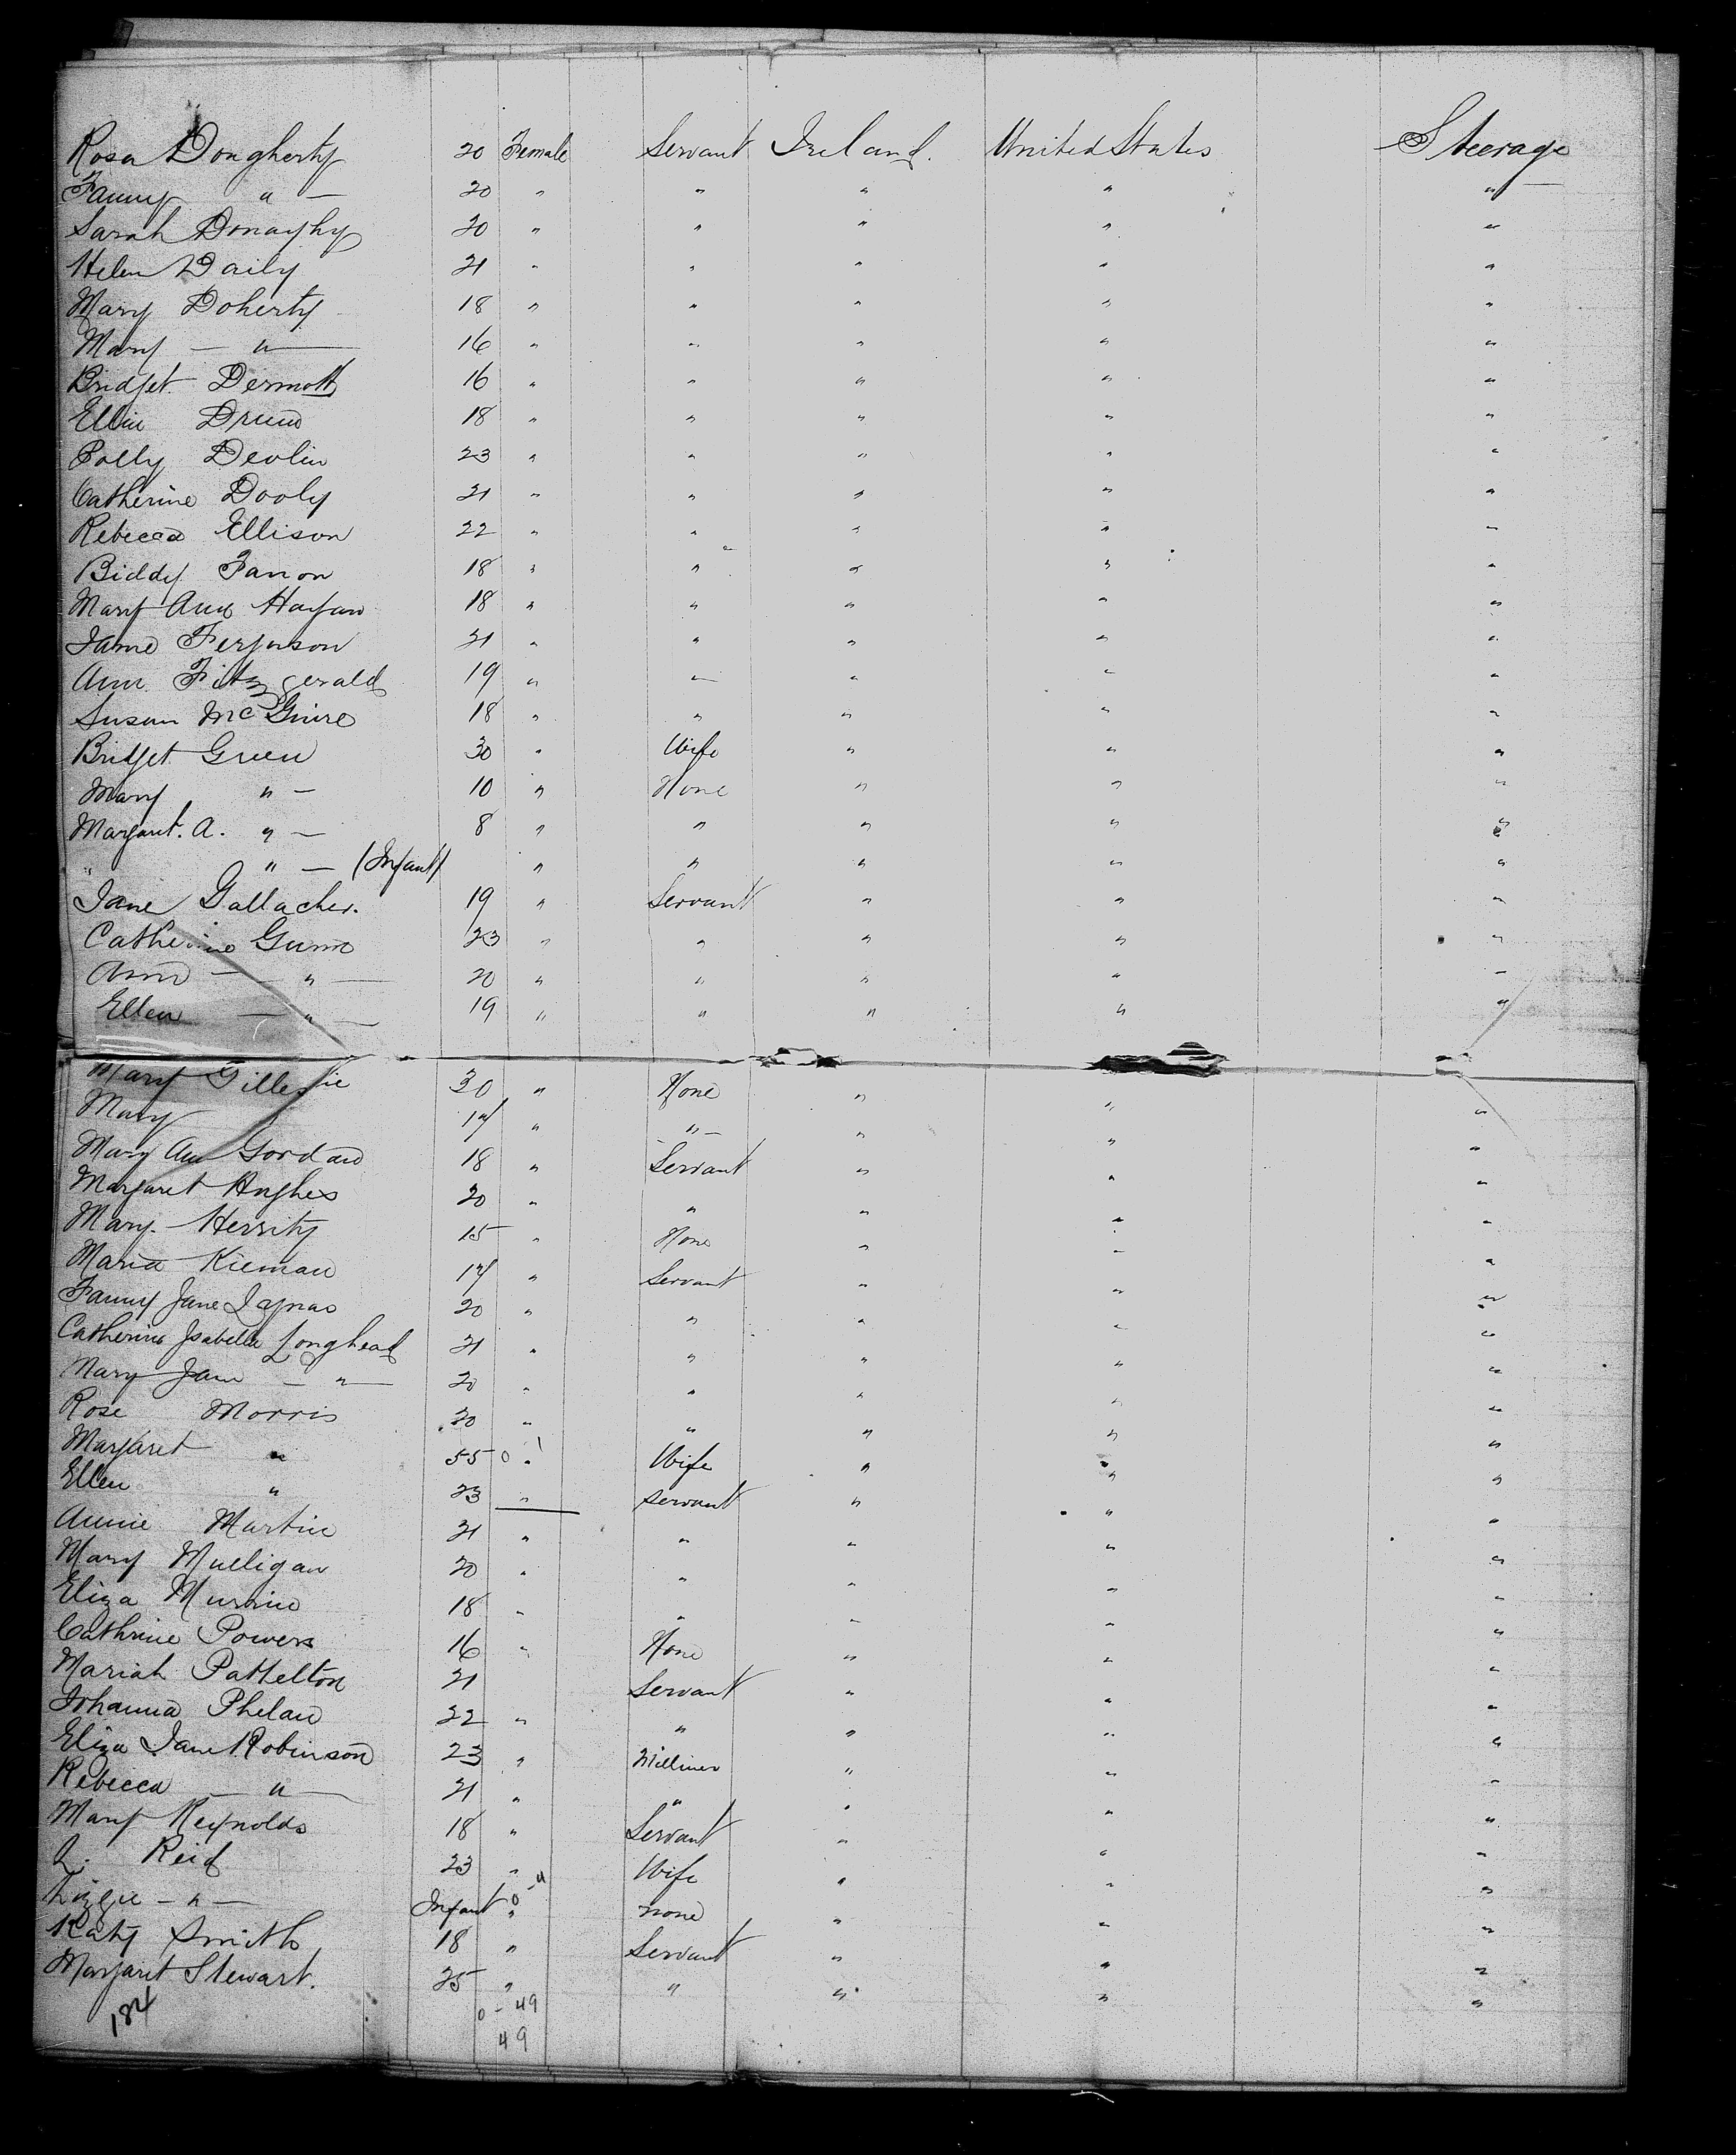 Rosa Dougherty 20 Female Servant Ireland. United States Steerage
Fanny " — 20 " " " " "
Sarah Donaghy 20 " " " " "
Helen Daily 21 " " " " "
Mary Doherty 18 " " " " "
Mary — " — 16 " " " " "
Bridget Dermott 16 " " " " "
Ellen 18 " " " " "
Polly Devlin 23 " " " " "
Catherine Dooly 21 " " " " "
Rebecca Ellison 22 " " " " "
Biddy 18 " " " " "
Mary Ann Hagan 18 " " " " "
Jane Ferguson 21 " " " " "
Ann Fitzgerald 19 " " " " "
Susan McGuire 18 " " " " "
Bridget Green 30 " Wife " " "
Mary " — 10 " None " " "
Margaret. A. " — 8 " " " " "
" " — (Infant) " " " " "
Jane Gallacher. 19 " Servant " " "
Catherine Gunn 23 " " " " "
Ann — " — 20 " " " " "
Ellen — " — 19 " " " " "
Mary Gillespie 30 " None " " "
Mary 17 " " — " " "
Mary Ann Gordan 18 " Servant " " "
Margaret Hughes 20 " " " " "
Mary Herrity 15 " None " " "
Maria Kiernan 17 " Servant " " "
Fanny Jane Lynas 20 " " " " "
Catherine Isabella Longhead 21 " " " " "
Mary Jane — " — 20 " " " " "
Rose Morris 20 " " " " "
Margaret " 55 " Wife " " "
Ellen " 23 " Servant " " "
Annie Martin 21 " " " " "
Mary Mulligan 20 " " " " "
Eliza 18 " " " " "
Cathrine Powers 16 " None " " "
Mariah Pattelton 21 Servant " " "
Johanna Phelan 22 " " " " "
Eliza Jane Robinson 23 " Milliner " " "
Rebecca — " — 21 " " " " "
Mary Reynolds 18 " Servant " " "
Reid 23 " Wife " " "
Lizzie — " — Infant " none " " "
Katy Smith 18 " Servant " " "
Margaret Stewart. 25 " " " " "
184 0 - 49
49